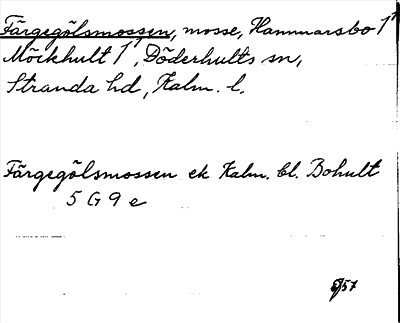 Färgegölsmossen, mosse, Hammarsbo 1¹
Möckhult 1¹, Döderhults sn,
Stranda hd, Kalm. l.
Färgegölsmossen ek Kalm. bl. Bohult
5 G 9 e
/57